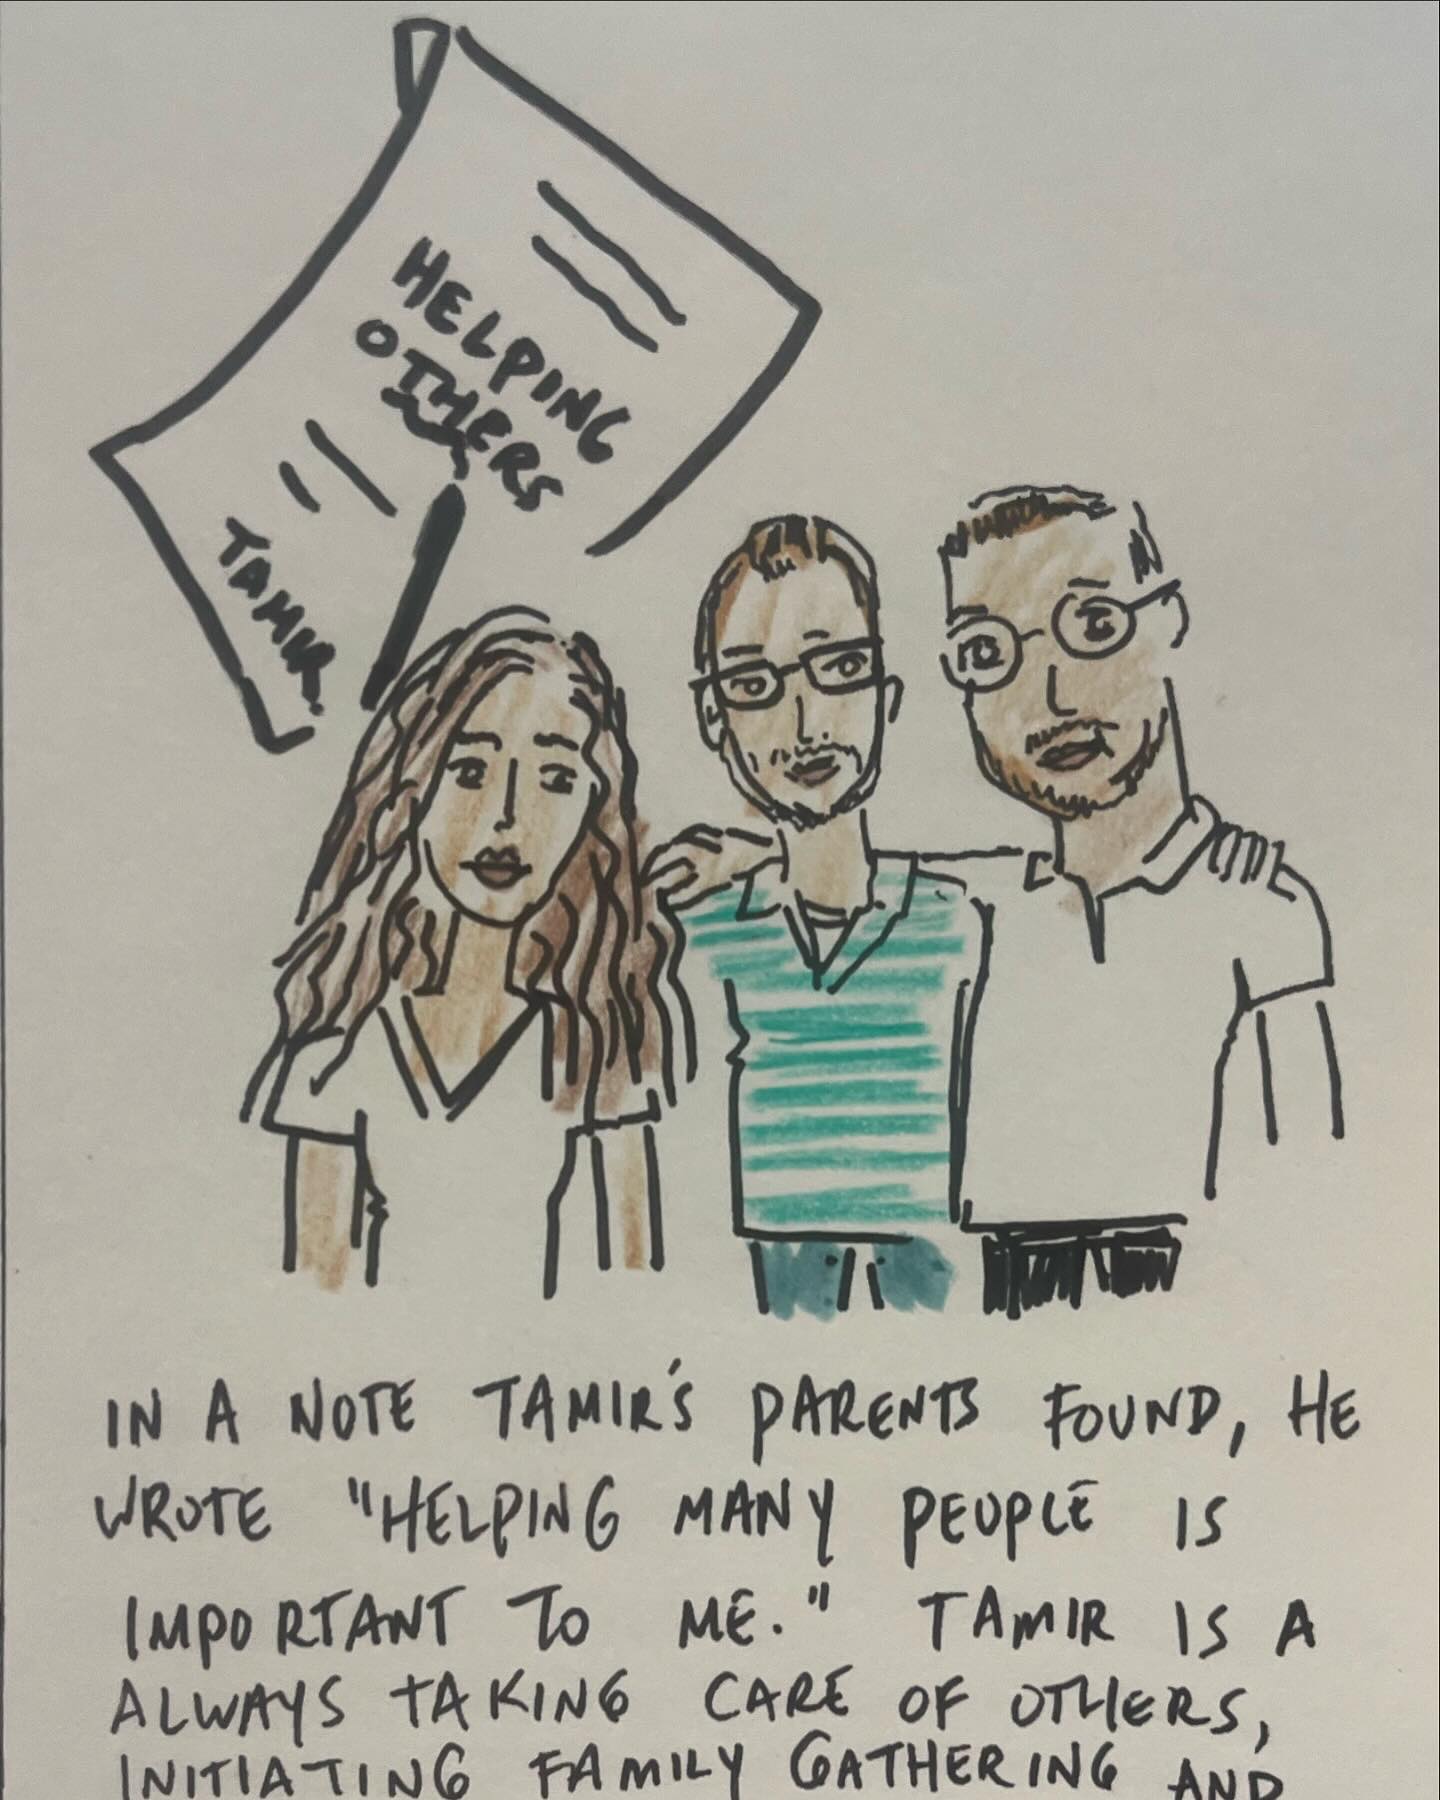 HELPING
OTHERS
TAMIR
IN A NOTE TAMIR'S PARENTS FOUND, HE
WROTE "HELPING MANY PEOPLE IS
IMPORTANT TO ME." TAMIR IS A
ALWAYS TAKING CARE OF OTHERS,
INITIATING FAMILY GATHERING AND